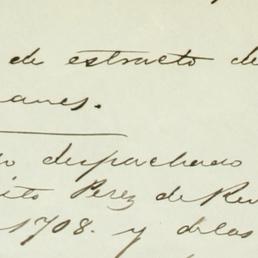 de estracto de
anes.
despachado
ito Perez de Rev
1708. y delas